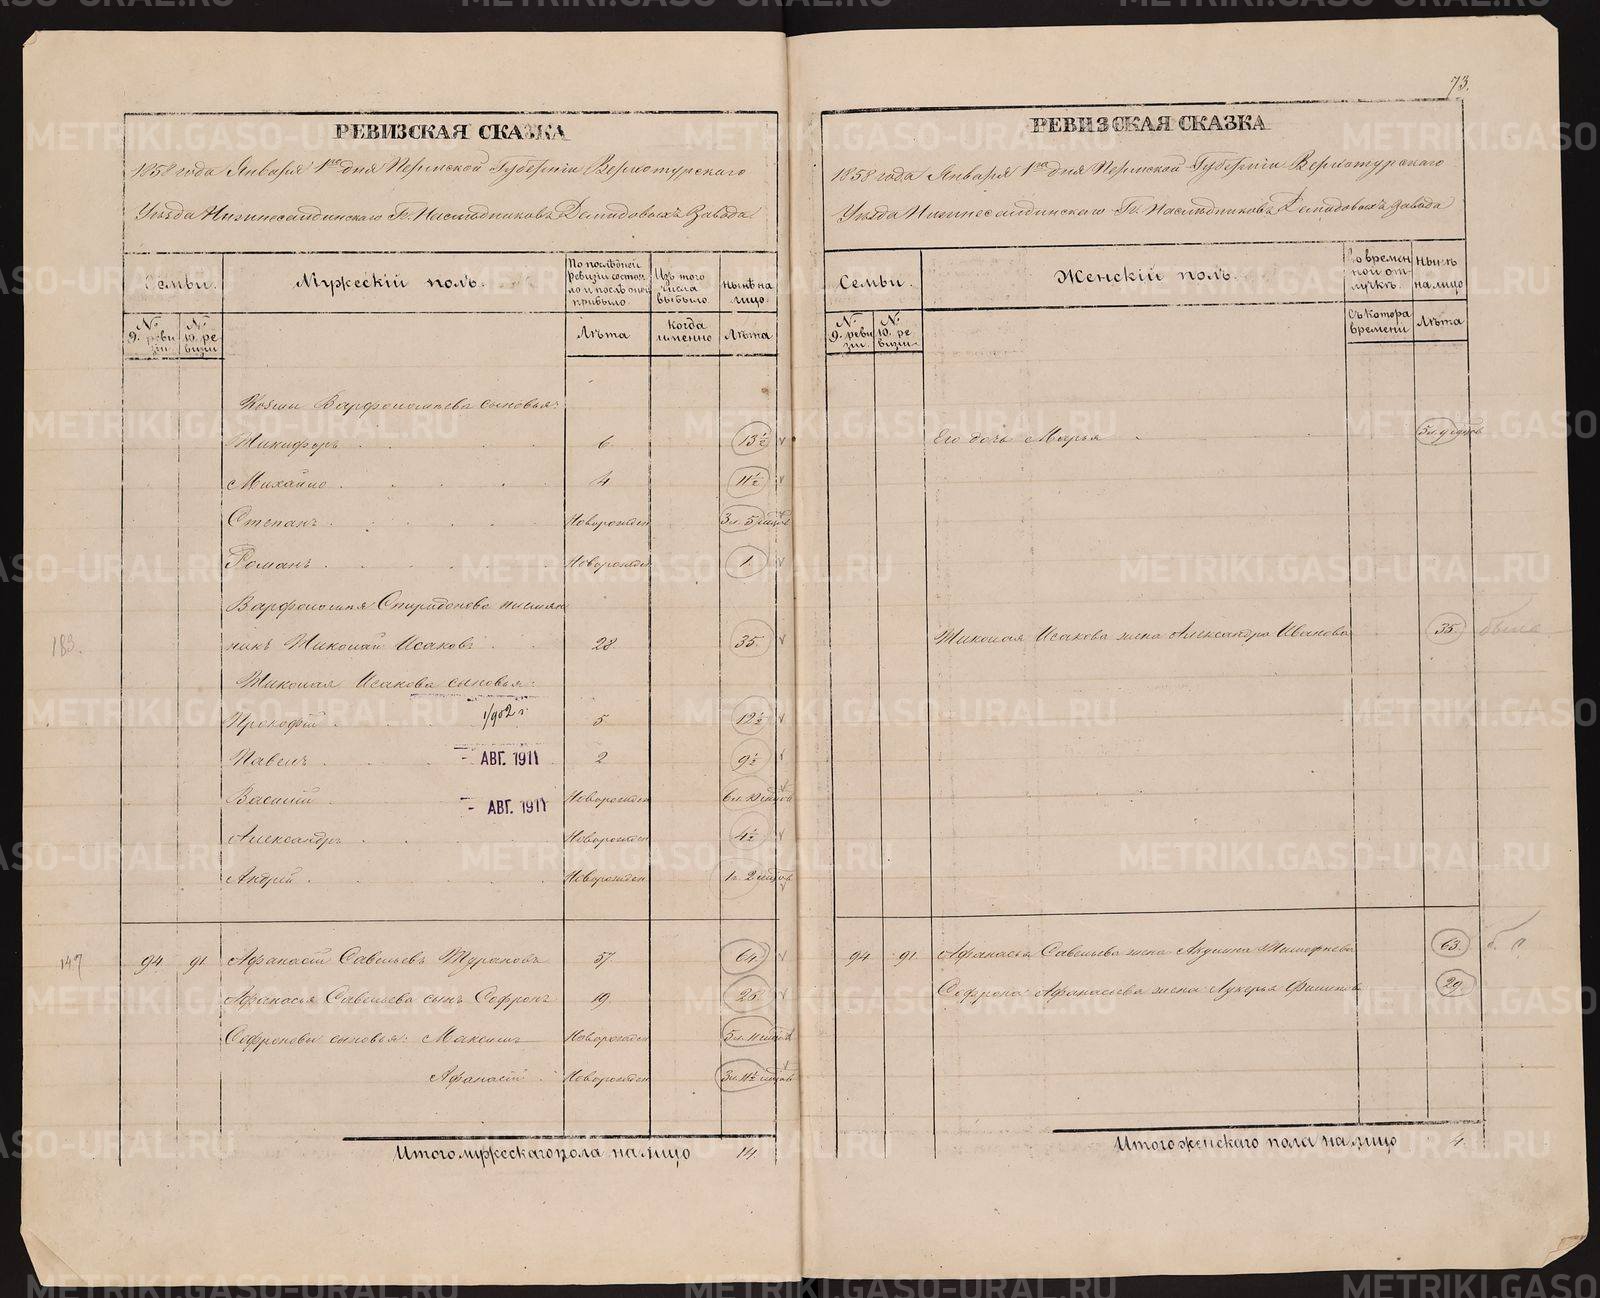 73.
РЕВИЗСКАЯ СКАЗКА
1858 года Января 1го дня Пермской Губерніи Верхотурскаго
Уѣзда Нижнесалдинскаго Гг. Наслѣдниковъ Демидовыхъ Завода
Семьи.
Мужескій полъ.
По послѣдней ревизіи состояло и послѣ оной прибыло
Изъ того числа выбыло
нынѣ на лицо
№ 9. ревизіи
№ 10. ревизіи
Лѣта
Когда именно
Лѣта
Козмы Варфоломеева сыновья:
Никифоръ 6 13½
Михайло 4 11½
Степанъ Новорожден 3 л. 5 мцовъ
Романъ Новорожден 1
Варфоломея Спиридонова племян
183.
никъ Николай Исаковъ 28 35.
Николая Исакова сыновья:
Прокофій 1/902 г. 5 12½
Павелъ - АВГ. 1911 2 9½
Василій - АВГ. 1911 Новорожден 6 л. 10 мцовъ
Александръ Новорожден 4½
Андрей Новорожден 1 г. 2 мцов
147 94 91 Афанасій Савельевъ Турановъ 57 64
Афанасья Савельева сынъ Софронъ 19 26
Софроновы сыновья: Максимъ Новорожден 5 л. 11 мцов
Афанасій Новорожден 3 л. 11½ мцов
Итого мужескаго пола на лицо 14.
РЕВИЗСКАЯ СКАЗКА
1858 года Января 1го дня Пермской Губерніи Верхотурскаго
Уѣзда Нижнесалдинскаго Гг. Наслѣдниковъ Демидовыхъ Завода
Семьи.
Женскій полъ.
Во временной отлучкѣ.
Нынѣ на лицо
№ 9. ревизіи
№ 10. ревизіи
Съ котора времени
Лѣта
Его дочь Марья 5 л. 9 мцов
Николая Исакова жена Александра Иванова 35.
94 91 Афанасья Савельева жена Акулина Тимофеева 63.
Софрона Афанасьева жена Лукерья 29
Итого женскаго пола на лицо 4.
METRIKI.GASO-URAL.RU